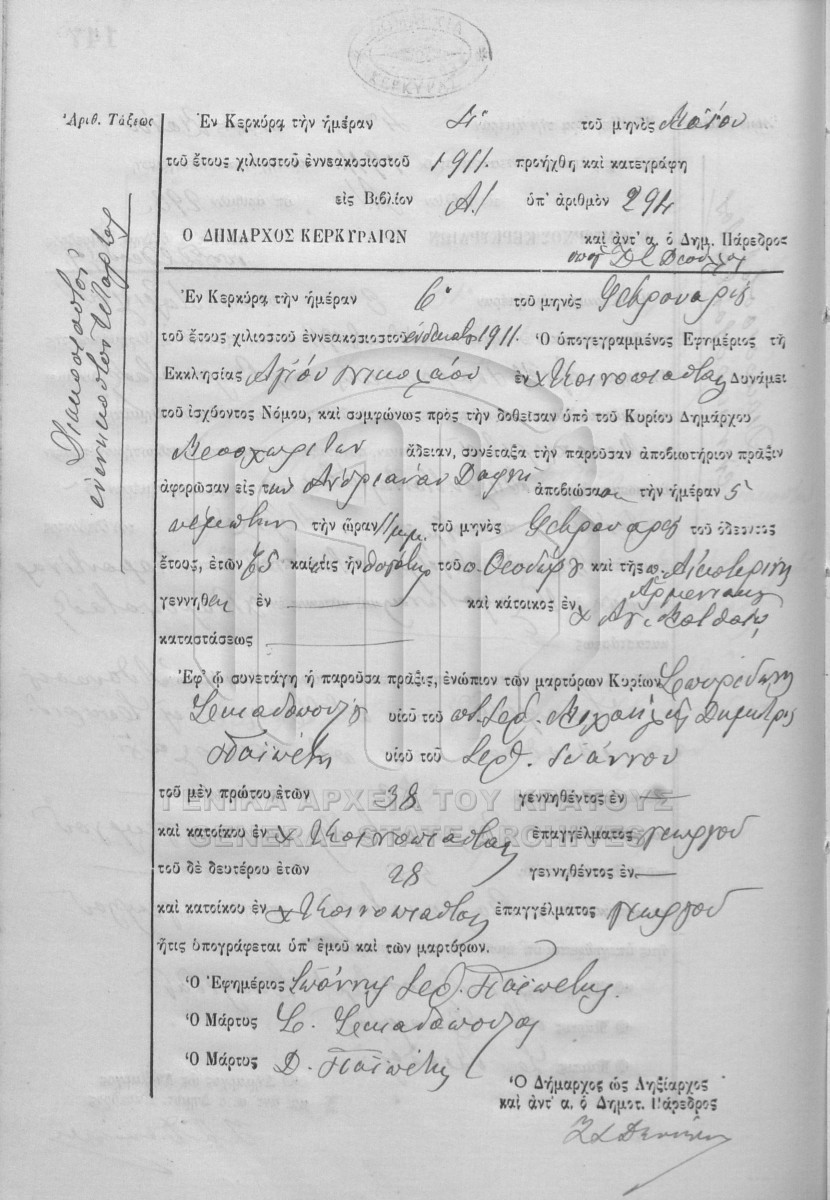 ΔΗΜΑΡΧΙΑ ΚΕΡΚΥΡΑΣ
Ἀριθ. Τάξεως
Ἐν Κερκύρᾳ τὴν ἡμέραν 4ῃ τοῦ μηνὸς Μαΐου
τοῦ ἔτους χιλιοστοῦ ἐννεακοσιοστοῦ 1911. προήχθη καὶ κατεγράφη
εἰς Βιβλίον Α! ὑπ' ἀριθμὸν 294
Ο ΔΗΜΑΡΧΟΣ ΚΕΡΚΥΡΑΙΩΝ καὶ ἀντ' α. ὁ Δημ. Πάρεδρος
Διακοσιοστὸν
ἐνενηκοστὸν τέταρτον
Ἐν Κερκύρᾳ τὴν ἡμέραν 6ῃ τοῦ μηνὸς Φεβρουαρίου
τοῦ ἔτους χιλιοστοῦ ἐννεακοσιοστοῦ ἑνδεκάτου 1911. Ὁ ὑπογεγραμμένος Ἐφημέριος τῆς
Ἐκκλησίας Ἁγίου Νικολάου ἐν χ Κοινοπιάσταις Δυνάμει
τοῦ ἰσχύοντος Νόμου, καὶ συμφώνως πρὸς τὴν δοθεῖσαν ὑπὸ τοῦ Κυρίου Δημάρχου
Μεσοχωριτῶν ἄδειαν, συνέταξα τὴν παροῦσαν ἀποβιωτήριον πρᾶξιν
ἀφορῶσαν εἰς τὴν Ἀνδριάναν Δαφνῆ ἀποβιώσασαν τὴν ἡμέραν 5
πέμπτην τὴν ὥραν 11 μ.μ. τοῦ μηνὸς Φεβρουαρίου τοῦ ὁδεύοντος
ἔτους, ἐτῶν 75 καὶ τις ἦν θυγάτηρ τοῦ π. Θεοδώρου καὶ τῆς π. Αἰκατερίνης
Ἀρμενιάκου
γεννηθεῖσα ἐν — καὶ κάτοικος ἐν χ Ἁγ.
καταστάσεως —
Ἐφ' ᾧ συνετάγη ἡ παροῦσα πρᾶξις, ἐνώπιον τῶν μαρτύρων Κυρίων Σπυρίδωνος
Σκιαδοπούλου υἱοῦ τοῦ ποτ. Σερ. Μιχαὴλ κ Δημήτριος
Παϊπέτης υἱοῦ τοῦ Σερ. Ἰωάννου
τοῦ μὲν πρώτου ἐτῶν 38 γεννηθέντος ἐν —
καὶ κατοίκου ἐν χ Κοινοπιάσταις ἐπαγγέλματος γεωργοῦ
τοῦ δὲ δευτέρου ἐτῶν 28 γεννηθέντος ἐν —
καὶ κατοίκου ἐν χ Κοινοπιάσταις ἐπαγγέλματος γεωργοῦ
ἥτις ὑπογράφεται ὑπ' ἐμοῦ καὶ τῶν μαρτύρων.
Ὁ Ἐφημέριος Ἰωάννης Σερ. Παϊπέτης.
Ὁ Μάρτυς Σ. Σκιαδόπουλος
Ὁ Μάρτυς Δ. Παϊπέτης
Ὁ Δήμαρχος ὡς Ληξίαρχος
καὶ ἀντ' α. ὁ Δημοτ. Πάρεδρος
ΓΕΝΙΚΑ ΑΡΧΕΙΑ ΤΟΥ ΚΡΑΤΟΥΣ
GENERAL STATE ARCHIVES